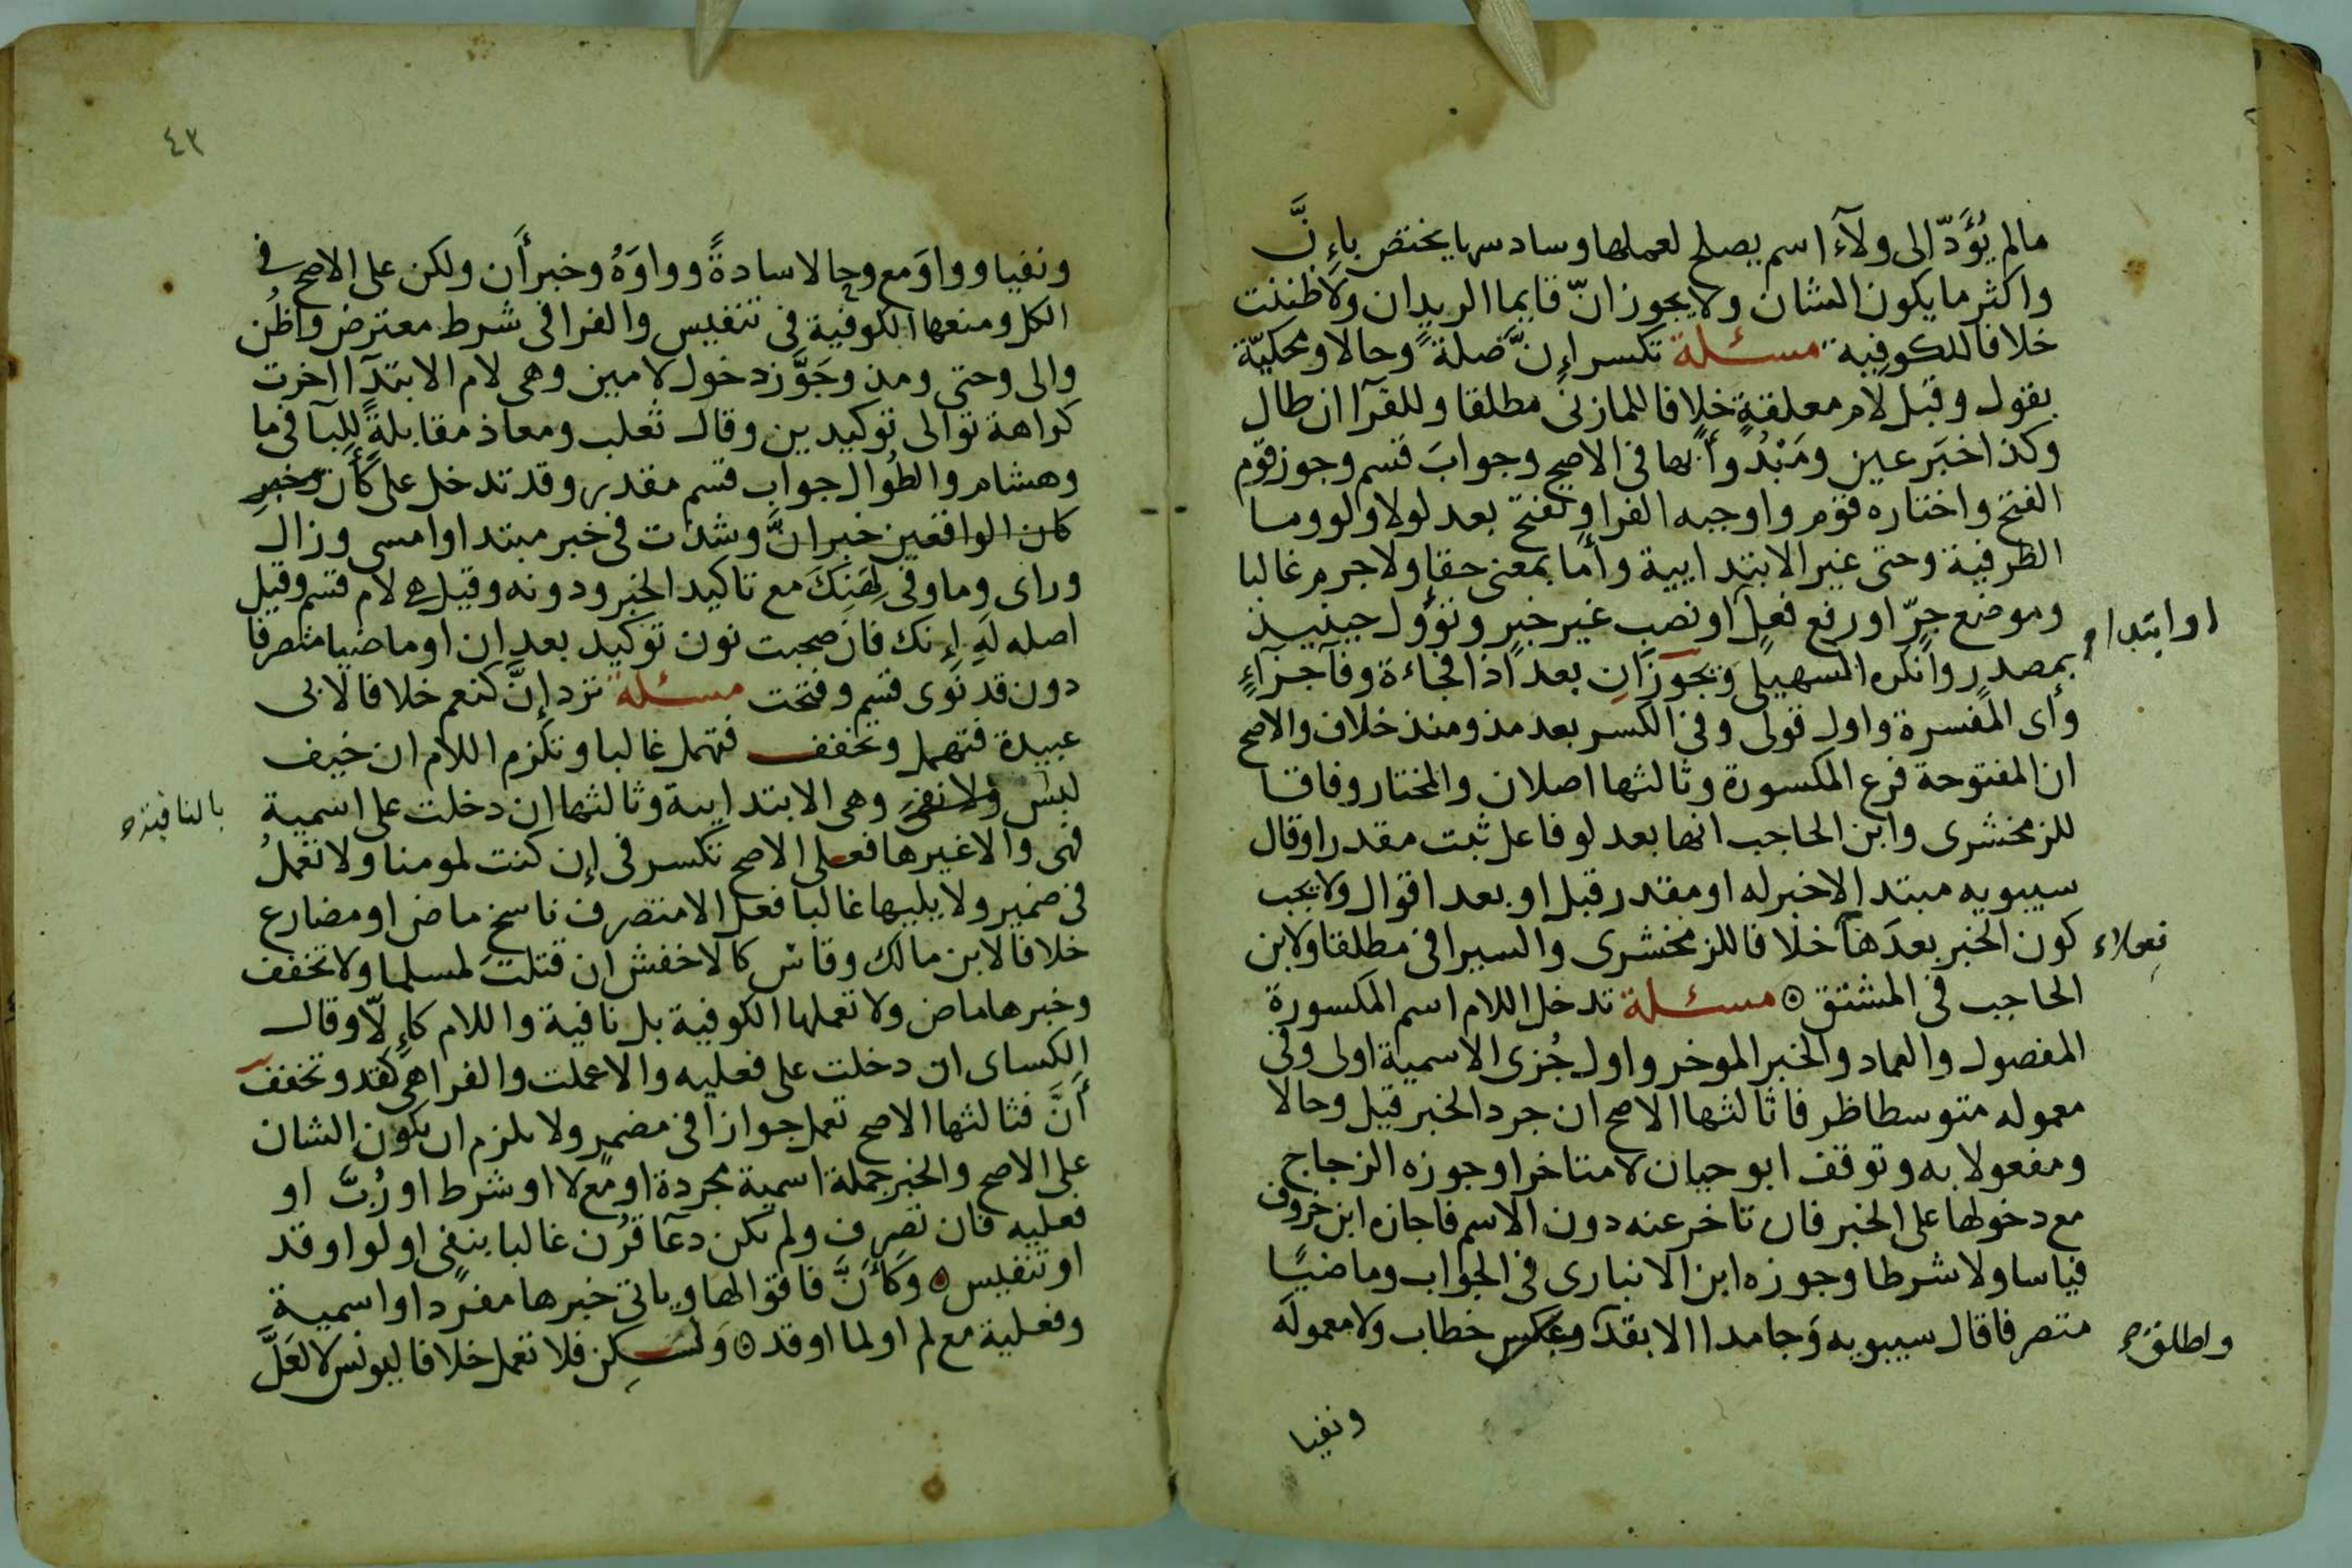 مالم يُؤَدّ الى ولآء اسم يصلح لعملها وسادسها يختص بإِنَّ
واكثر ما يكون الشان ولا يجوز انّ قايما الزيدان ولا ظننت
خلافا للكوفية مسئلة تكسر إِنَّ صلةً وحالا ومحكيّة
بقول وقبل لام معلقةٍ خلافا للمازنى مطلقا وللفرّا ان طال
وكذا خبَر عين ومَبْدُوأٌ بها فى الاصح وجوابَ قسم وجوز قوم
الفتح واختاره قوم واوجبه الفرا وتفتح بعد لولا ولو وما
الظرفية وحتى غير الابتدايية وأَما بمعنى حقا ولا جرم غالبا
وموضع جرّ او رفع فعل او نصب غير خبر وتؤول حينيذ
او ابتدا
بمصدر وانكره السهيلى ويجوزان بعد اذا فجاءة وفآ جزآءٍ
وأى المفسرة واول قولى وفى الكسر بعد مذ ومنذ خلاف والاصح
ان المفتوحة فرع المكسورة وثالثها اصلان والمختار وفاقا
للزمخشرى وابن الحاجب انها بعد لو فاعل ثبت مقدرا وقال
سيبويه مبتدا لا خبر له او مقدر قبل او بعد اقوال ولا يجب
كون الخبر بعدَها خلافا للزمخشرى والسيرافى مطلقا ولابن
فعلا
الحاجب فى المشتق ۞ مسئلة تدخل اللام اسم المكسورة
المفصول والعماد والخبر الموخر واول جُزءى الاسمية اولى وفى
معموله متوسطا ظرفا ثالثها الاصح ان جرد الخبر قيل وحالا
ومفعولا به وتوقف ابو حيان لا متاخرا وجوزه الزجاج
مع دخولها على الخبر فان تاخر عنه دون الاسم فاجازه ابن خروف
قياسا ولا شرطا وجوزه ابن الانبارى فى الجواب وماضيًا
متصرفا قال سيبويه وَجامدا الا بقد وعكس خطاب ولا معموله
واطلق
ونفيا
٤٣
ونفيا وواوَ مع وحالا سادةً وواوَهُ وخبر أَن ولكن على الاصح فى
الكل ومنعها الكوفية فى تنفيس والفرا فى شرط معترض واظُن
والى وحتى ومذ وجَوَّز دخول لامين وهى لام الابتدآ اخرت
كراهة توالى توكيدين وقال ثعلب ومعاذ مقابلةً للبآ فى ما
وهشام والطُوال جواب قسم مقدر وقد تدخل على كأَن وخبرِ
كان الواقعين خبر انَّ وشذت فى خبر مبتدا وامسى وزال
وراى وما وفى لِهَنِكَ مع تاكيد الخبر ودونه وقيل هى لام قسم وقيل
اصله لَهِ إِنك فان صحبت نون توكيد بعد ان او ماضيا متصرفا
دون قد نوى قسم وفتحت مسئلة ترد إِنَّ كنعم خلافا لابى
عبيدة فتهمل وتخفف فتهمل غالبا وتلزم اللام ان خيف
لبس ولا نفى وهى الابتدايية وثالثها ان دخلت على اسمية
بالنافية
فهى والا غيرها فعلى الاصح تكسر فى إن كنت لمومنا ولا تعملُ
فى ضمير ولا يليها غالبا فعل الا متصرف ناسخ ماض او مضارع
خلافا لابن مالك وقاس كالاخفش ان قتلت لمسلما ولا تخفف
وخبرها ماض ولا تعملها الكوفية بل نافية واللام كإِلّا وقال
الكساى ان دخلت على فعليه والا عملت والفرا هى كقد وتخفف
أَنَّ فثالثها الاصح تعمل جوازا فى مضمر ولا يلزم ان يكون الشان
على الاصح والخبر جملة اسمية مجردة او مع لا او شرط او رُبَّ او
فعليه فان تصرف ولم يكن دعآ قُرن غالبا بنفى او لو او قد
او تنفيس ۞ وَكَأَنَّ فاقوالها وياتى خبرها مفردا واسمية
وفعلية مع لم او لما او قد ۞ وَلكِن فلا تعمل خلافا ليونس لا لعَلَّ